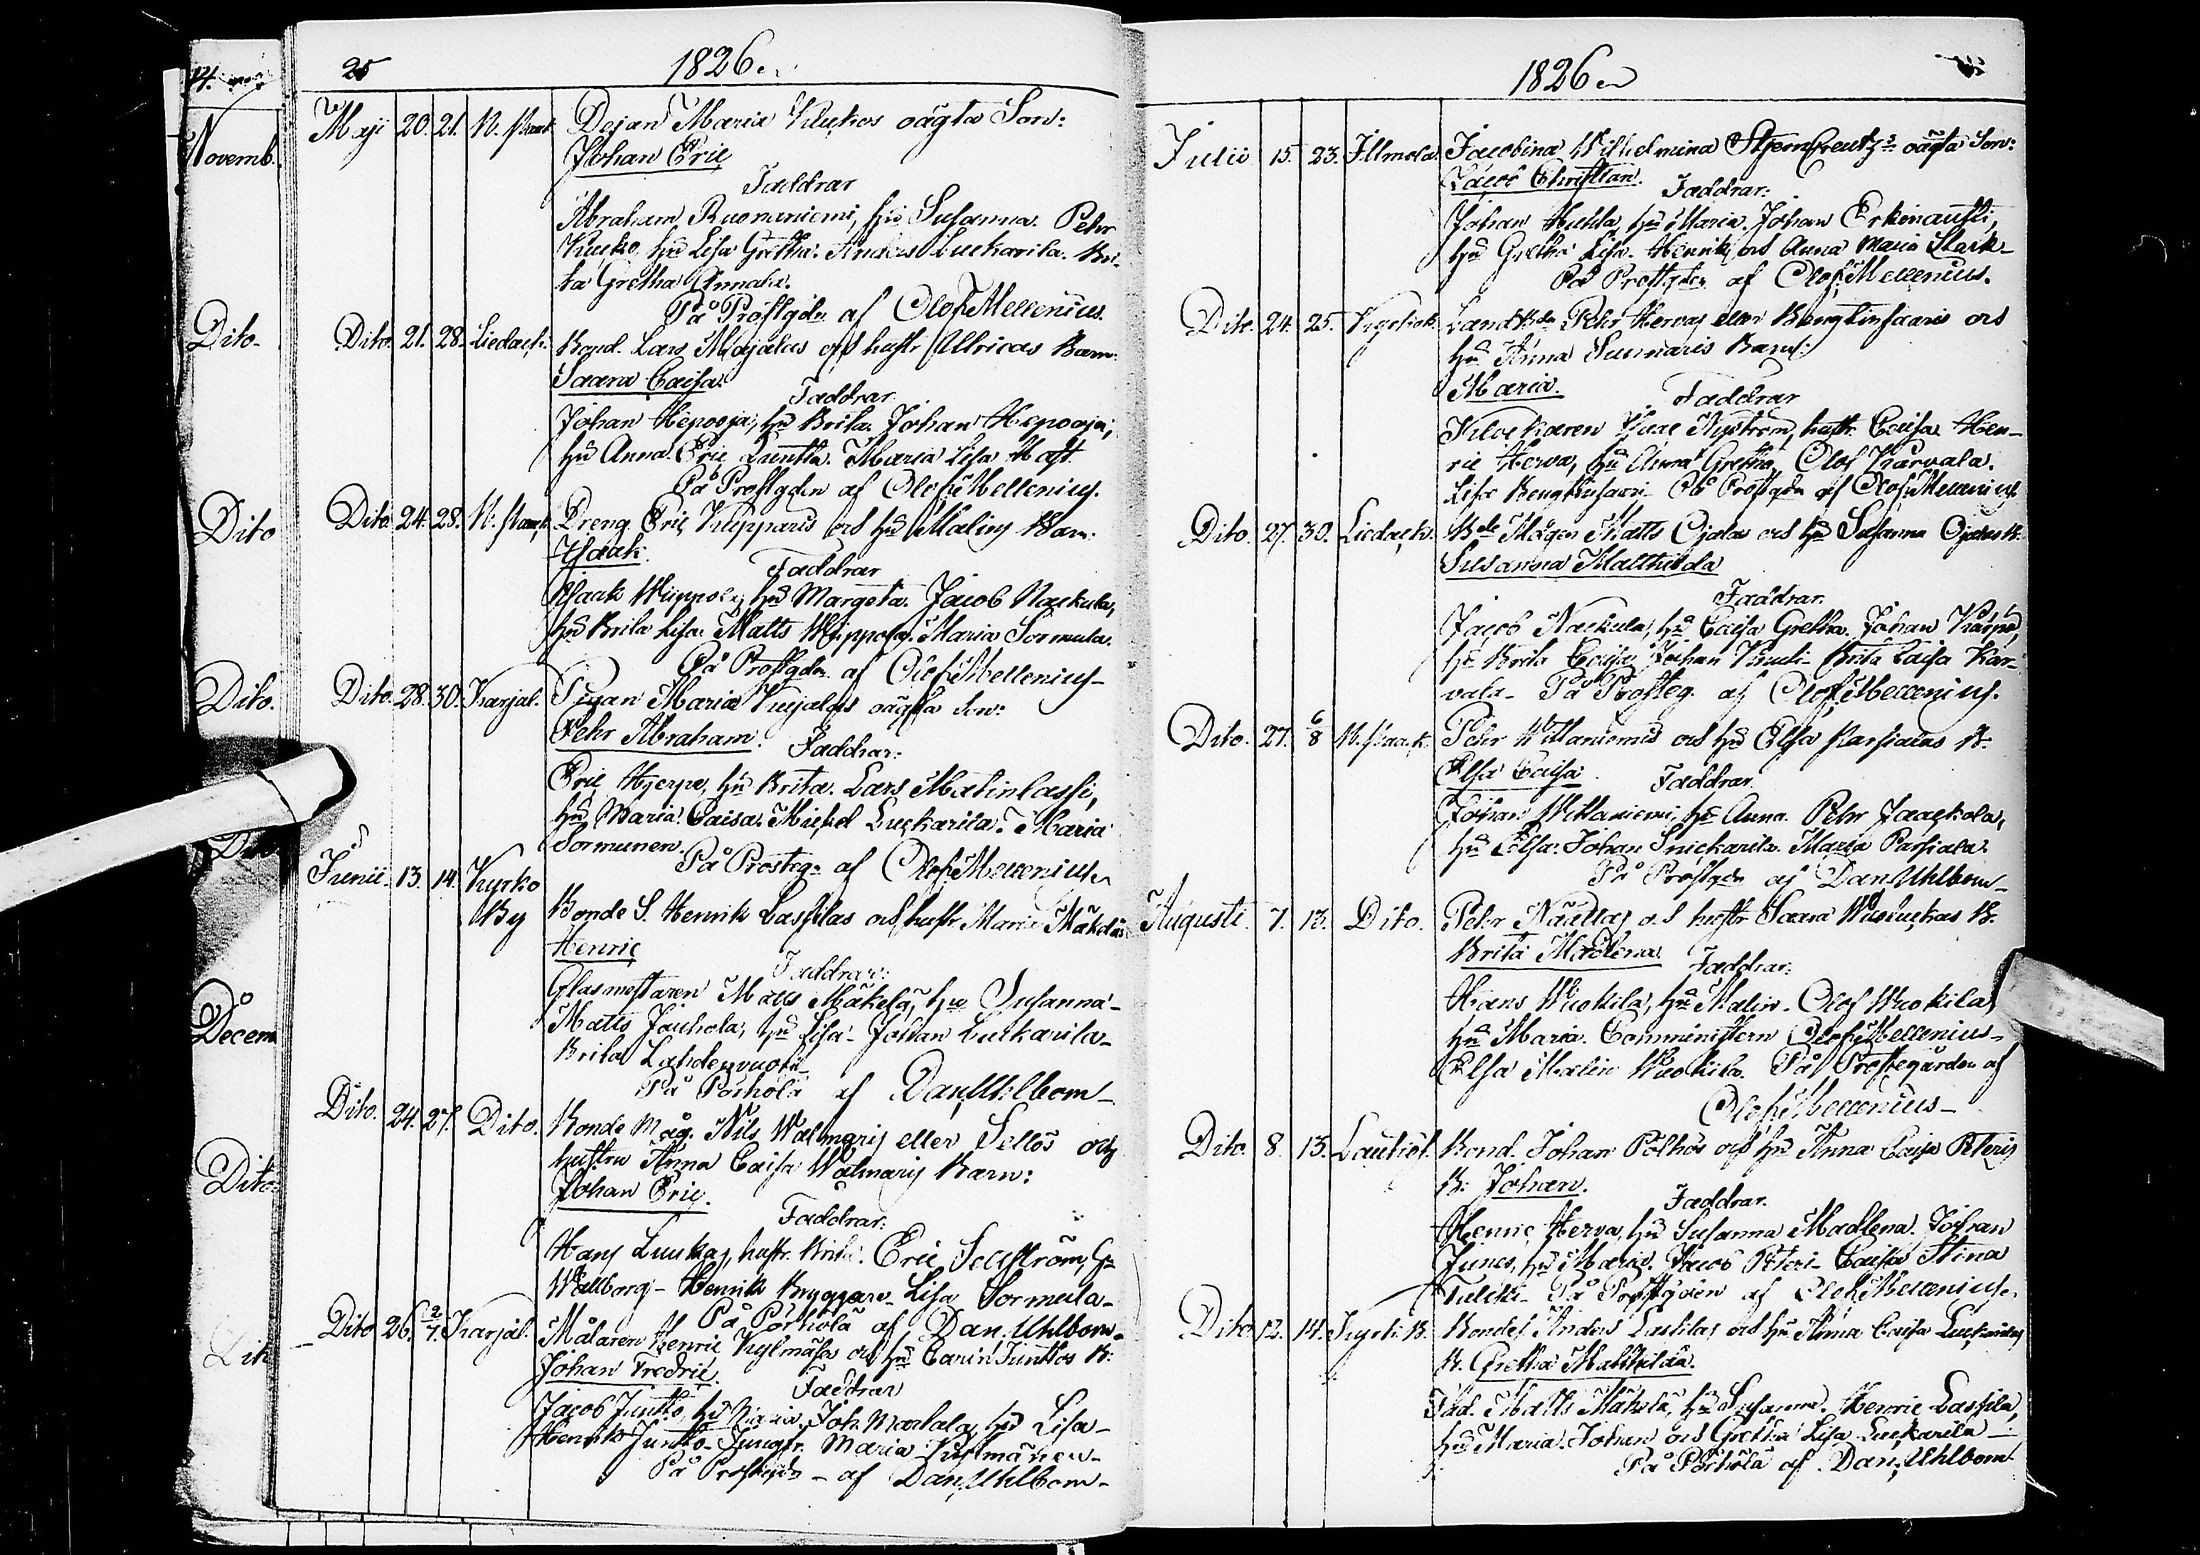 25 1826
Maji 20. 21. N. Paak Dejan Maria Kuckos oägta Son:
Johan Eric
Faddrar
Abraham Ruonaniemi, hu Susanna. Pehr
Kucko, hu Lisa Gretha. Anders Luckarila. Bri-
ta Gretha Annala.
På Prostgdn af Olof Mellenius.
Dito. 21. 28. Liedack. Bond. Lars Majalas och hustr Ulricas Barn:
Saara Caisa.
Faddrar
Johan Hepooja, hu Brita. Johan Hepooja,
hu Anna. Eric Luntta. Maria Lisa Mast.
På Prostgdn af Olof Mellenius.
Dito. 24. 28. N. Paack Dreng Eric Kupparis och hu Malins Barn.
Isaak.
Faddrar
Isaak Wippola, hu Margeta. Jacob Nackula,
hu Brita Lisa. Matts Wippola. Maria Sormula.
På Prostgdn af Olof Mellenius
Dito. 28. 30. Karjal. Pigan Maria Kujalas oägta Son:
Pehr Abraham.
Faddrar:
Eric Hjerpe, hu Brita. Lars Matinlassi,
hu Maria Caisa. Michel Luckarila. Maria
Sormunen.
På Prosteg. af Olof Mellenius
Junii 13. 14. Kyrko
By Bonde S. Henrik Lassilas och hustr. Maria Mäkelas
Henric
Faddrar:
Glasmestaren Matts Mäkelä, hu Susanna
Matts Jauhola, hu Lisa. Johan Luckarila
Brita Lahdenvuoti
På Pörhölä af Dan. Uhlbom
Dito. 24. 27. Dito. Bonde Måg. Nils Walmaris eller Sellos och
hustru Anna Caisa Walmaris Barn:
Johan Eric.
Faddrar:
Hans Luukas, hustr. Brita. Eric Sellström, hu
Wallborg Henrik Bryggare Lisa Sormula
På Pörhölä af Dan. Uhlbom
Dito 26. 2/7. Karjal. Målaren Henric Kylmäsa och hu Carin Junttos B:
Johan Fredric.
Faddrar
Jacob Juntto, hu Maria. Joh. Martala, hu Lisa
Henrik Juntto. Jungfr. Maria Kylmänen
På Prostgdn af Dan. Uhlbom
1826
Julii 15. 23. Illmola. Jacobina Wilhelmina Stjerncreutz's oägta Son:
Jacob Christian.
Faddrar:
Johan Huhta, hu Maria. Johan Erkinantti,
hu Gretha Lisa. Henrik och Anna Maria Stark
På Prostgdn af Olof Mellenius.
Dito. 24. 25. Kyrkob. Landbdn Pehr Hervas eller Bengtinsaaris och
hu Anna Sunnaris Barn:
Maria.
Faddrar
Isac Nyström, hustr. Caisa. Hen-
ric Herva, hu Anna Gretha. Olof Kärvala.
Lisa Bengtinsaari På Prostgdn af Olof Mellenius
Dito. 27. 30. Liedack. Bde Mågen Matts Ojala och hu Susanna Ojalas B.
Susanna Matthilda
Faddrar.
Jacob Nackula, hu Caisa Gretha. Johan Kärpä,
hu Brita Caisa Johan Knuti Brita Caisa Kar-
vala På Prosteg. af Olof Mellenius.
Dito. 27. 6/8 N. Paack. Pehr Willaniemis och hu Elsa Parsialas B:
Elsa Caisa.
Faddrar.
Johan Willaniemi, hu Anna. Pehr Jaackola,
hu Elsa. Johan Snickarila. Maria Parsiala.
På Prostgdn af Dan Uhlbom
Augusti 7. 13. Dito. Pehr Näätas och hustr Saara Wuoluckas B.
Brita Madlena.
Faddrar:
Hans Wuokila, hu Malin. Olof Wuokila,
hu Maria. Comministern Olof Mellenius
Elsa Malin Wuokila. På Prostegården af
Olof Mellenius
Dito. 8. 13. Lautiol. Bond. Johan Pölhös och hu Anna Caisa Peteris
B: Johan.
Faddrar.
Henric Herva, hu Susanna Madlena. Johan
Junes, hu Maria. Jacob Peteri Caisa Stina
På Prostgden af Olof Mellenius
Dito 12. 14. Kyrk. B. Bondes Anders Lassilas och hu Anna Caisa Luckarilas
B. Gretha Matthilda.
Fad. Matts Mäkelä, hu Susanna. Henric Lassila,
hu Maria. Johan och Gretha Lisa Luckarila
På Pörhölä af Dan. Uhlbom
14.
Novemb.
Dito.
Dito
Dito.
Decem
Dito